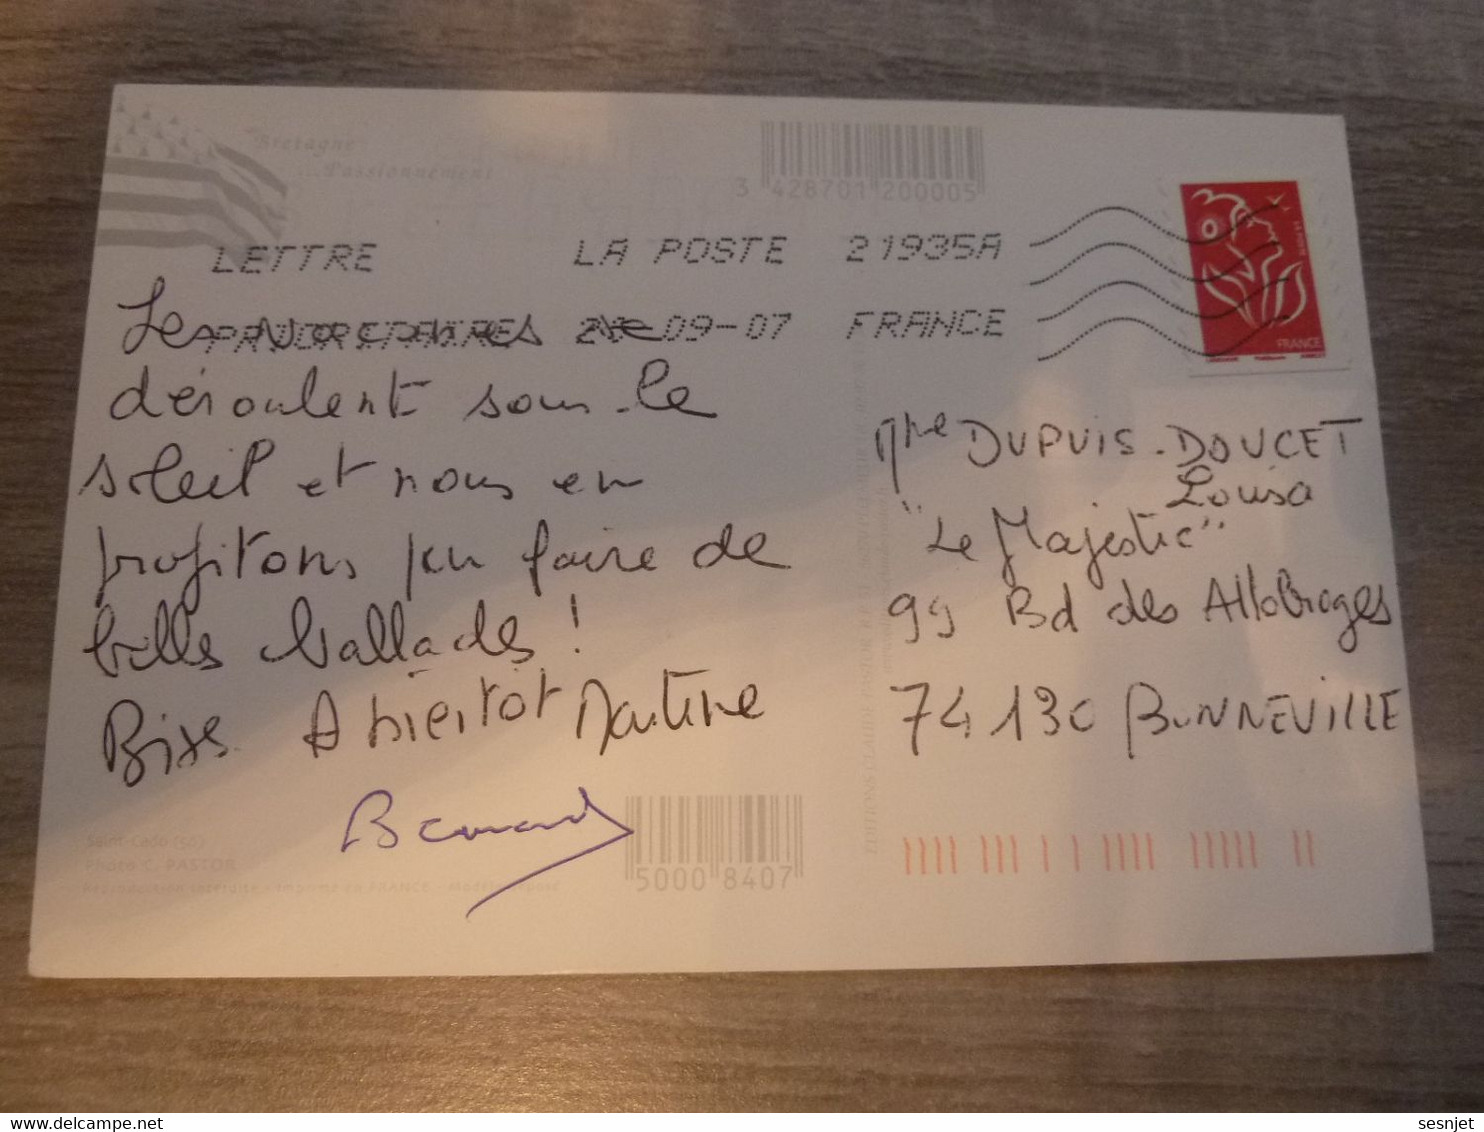 Bretagne
Passionnément
3 428701 200005
LETTRE LA POSTE 21935A
PRIORITAIRE 09-07 FRANCE
FRANCE
Les vacances se
déroulent sous le
soleil et nous en
profitons pour faire de
belles ballades !
Bises. A bientôt Martine
Bernard
Mme DUPUIS-DOUCET
Louisa
"Le Majestic"
99 Bd des Allobroges
74130 BONNEVILLE
Saint-Cado (56)
Photo C. PASTOR
Reproduction interdite - Imprimé en FRANCE - Modèle déposé
5000 8407
sesnjet